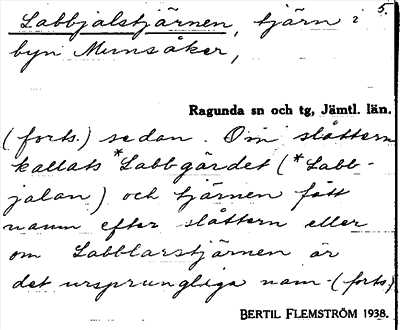 5.
Labbjalstjärnen, tjärn i
byn Munsåker,
Ragunda sn och tg, Jämtl. län.
(forts.) sedan. Om slåttern
kallats *Labbgärdet (*Labb-
jalan) och tjärnen fått
namn efter slåttern eller
om Labblarstjärnen är
det ursprungliga nam- (forts.)
BERTIL FLEMSTRÖM 1938.